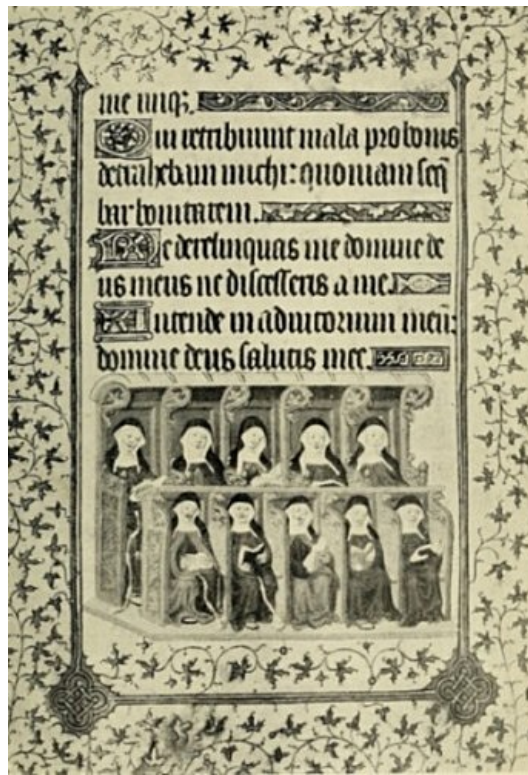 me iniq;.
Qui retribuunt mala pro bonis
detrahebant michi: quoniam seq̄
bar bonitatem.
Ne derelinquas me domine de
us meus ne discesseris a me.
Intende in adiutorium meū:
domine deus salutis mee.